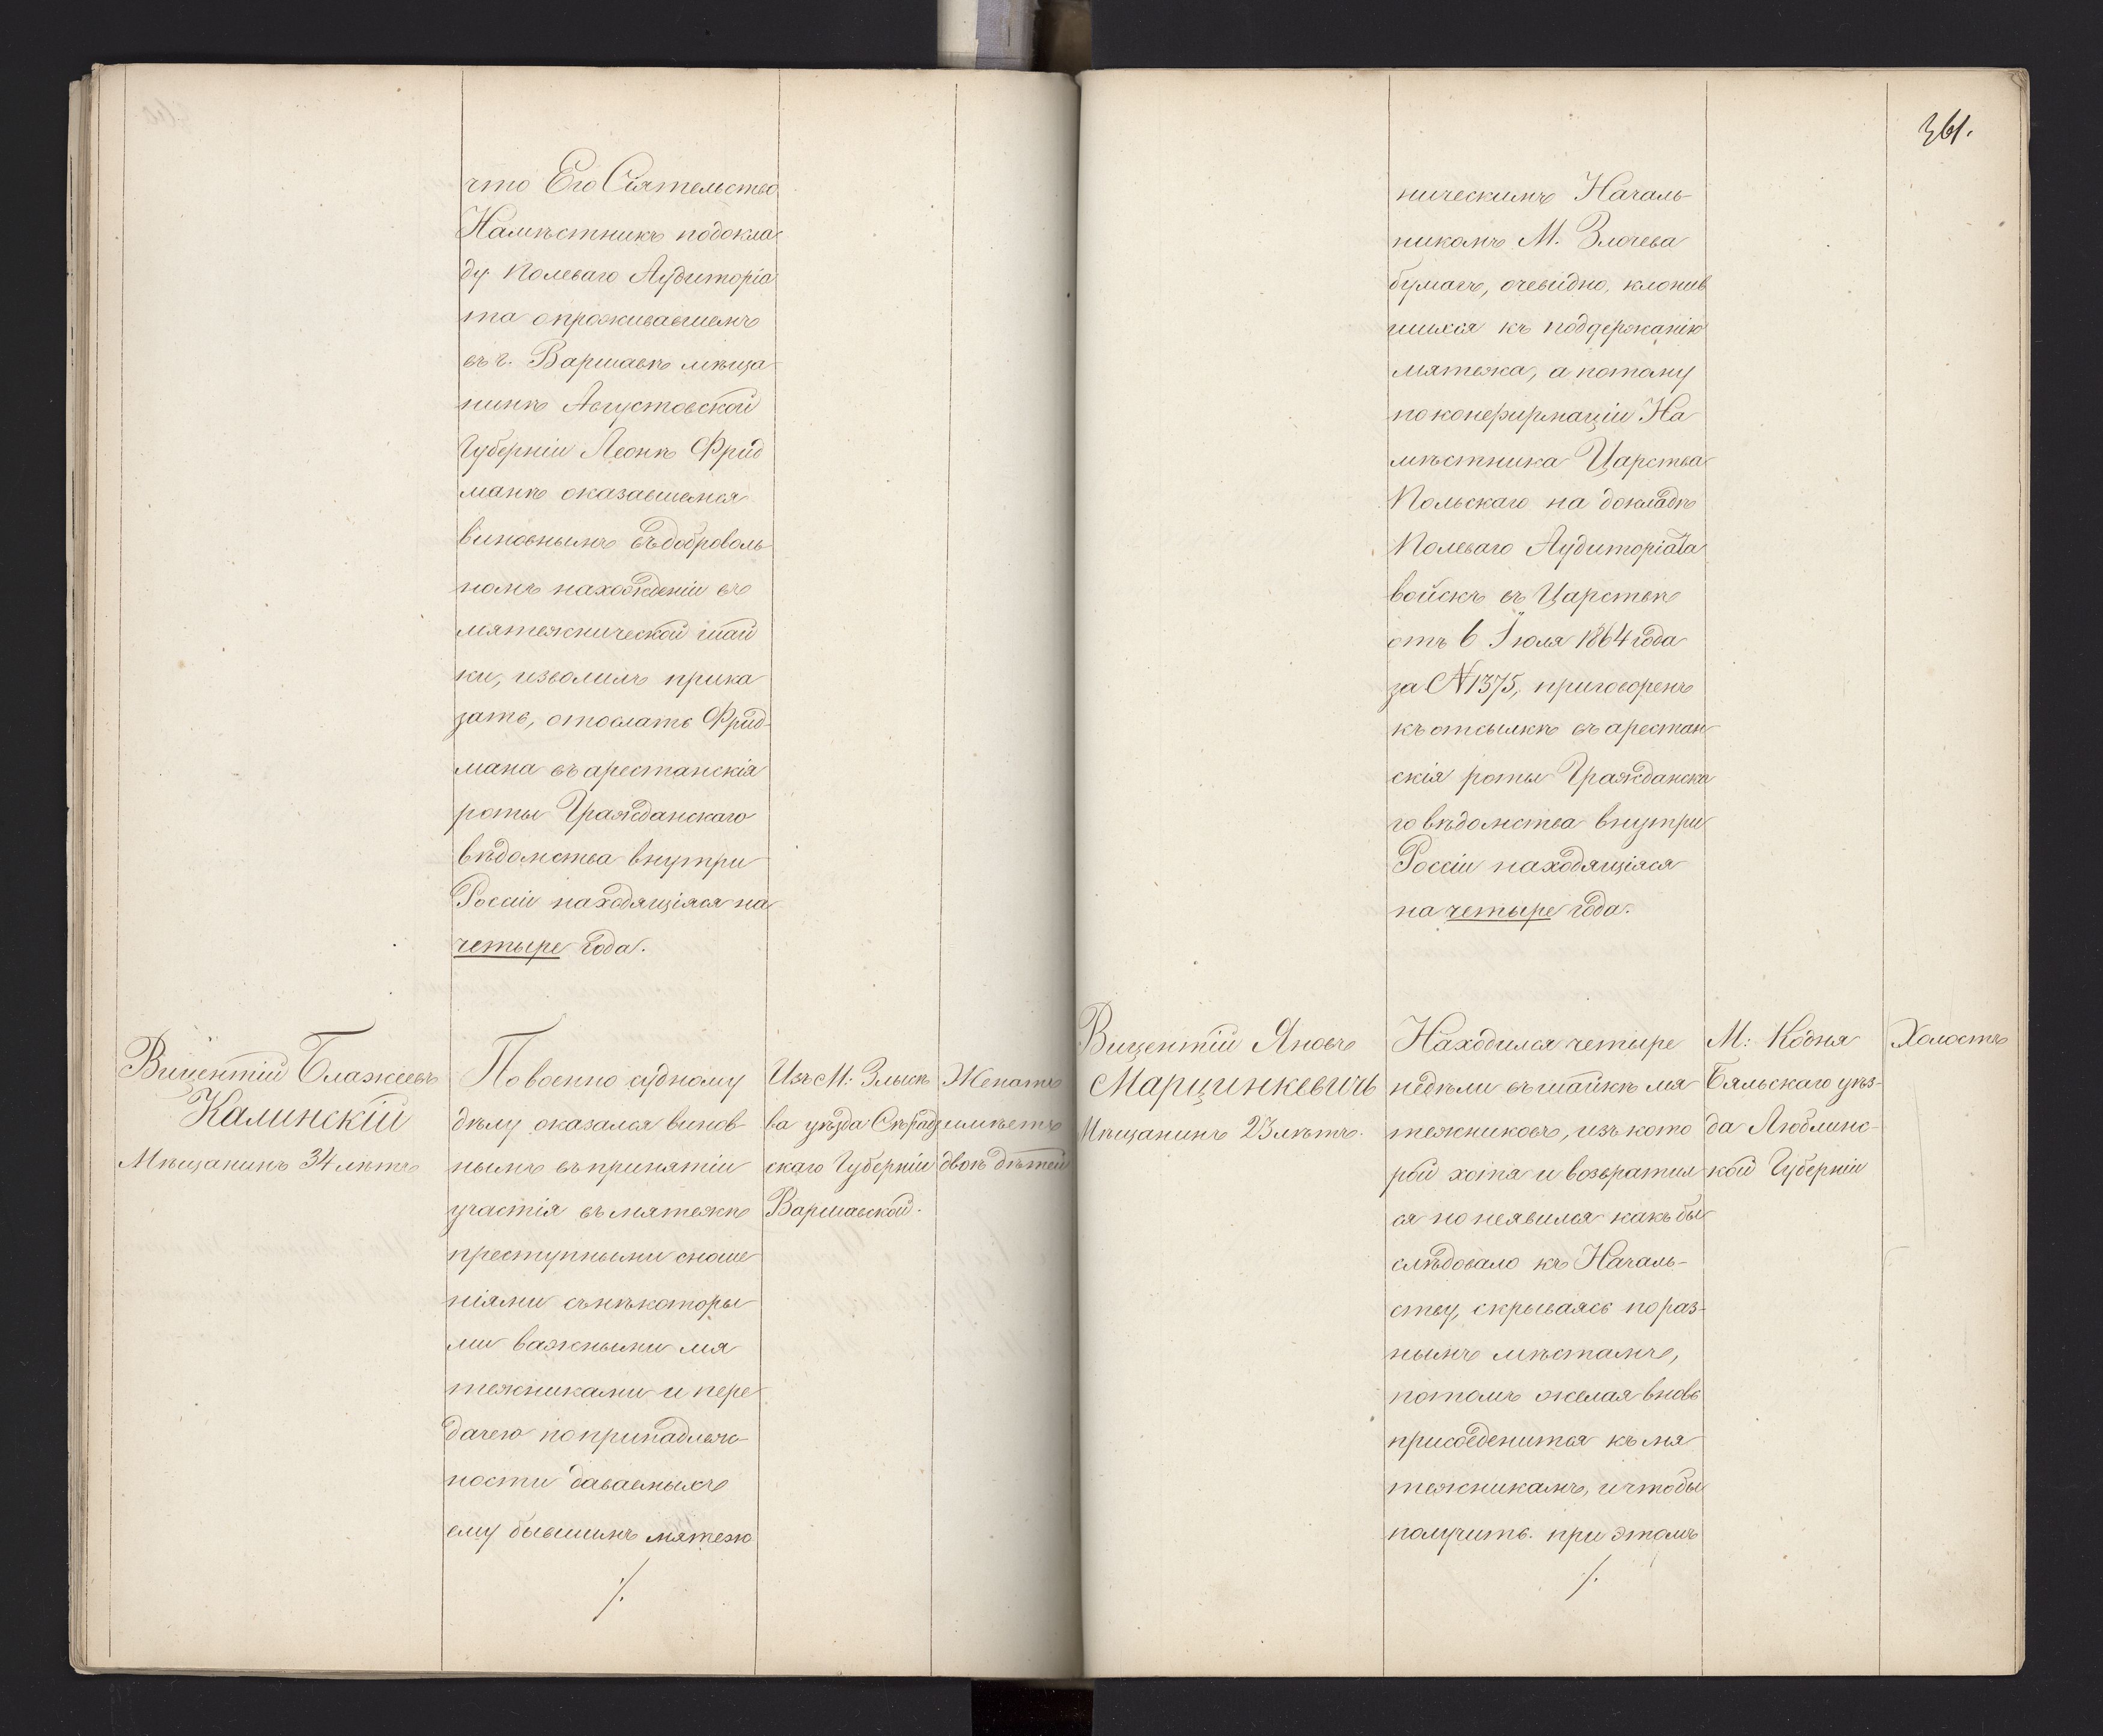 что Его Сіятельство
Намѣстникъ подокла
ду Полеваго Аудиторіа
та опроживавшемъ
въ г. Варшавѣ мѣща
нинѣ Августовской
Губерніи Леонѣ Фрид
манѣ оказавшемся
виновнымъ въ доброволь
номъ нахожденіи въ
мятежнической шай
ки, изволилъ прика
зать, отослать Фрид-
мана въ арестанскія
роты Гражданскаго
вѣдомства внутри
Россіи находящіяся на
четыре года.
Вицентій Блажеевъ
Калинскій
Мѣщанинъ 34 лѣтъ
По военно судному
дѣлу оказался винов-
нымъ въ принятіи
участія въ мятежѣ
преступными сноше
ніями съ нѣкоторы
ми важными мя
тежниками и пере
дачею по принадлеж-
ности даваемыхъ
ему бывшимъ мятеж
⁒
Изъ М: Злыкъ
ва уѣзда Сѣрадз
скаго Губерніи
Варшавской.
Женатъ
имѣетъ
двоѣ дѣтей
361.
ническимъ Началь-
никомъ М. Злочева
бумагъ, очевидно, клонив
шихся къ поддержанію
мятежа, а потому
по конфирмаціи На
мѣстника Царства
Польскаго на докладѣ
Полеваго Аудиторіата
войскъ въ Царствѣ
отъ 6 Іюля 1864 года
за № 1375, приговоренъ
къ отсылкѣ въ арестан
скія роты Гражданска
го вѣдомства внутри
Россіи находящіяся
на четыре года.
Вицентій Яновъ
Марцинкевичъ
Мѣщанинъ 23 лѣтъ.
Находился четыре
недѣли въ шайкѣ мя
тежниковъ, изъ кото
рой хотя и возвратил
ся но неявился какъ бы
слѣдовало къ Началь-
ству, скрываясь по раз-
нымъ мѣстамъ,
потомъ желая вновь
присоеденится къ мя
тежникамъ, и чтобы
получить при этомъ
⁒
М: Кодня
Бяльскаго уѣз-
да Люблинс-
кой Губерніи
Холостъ